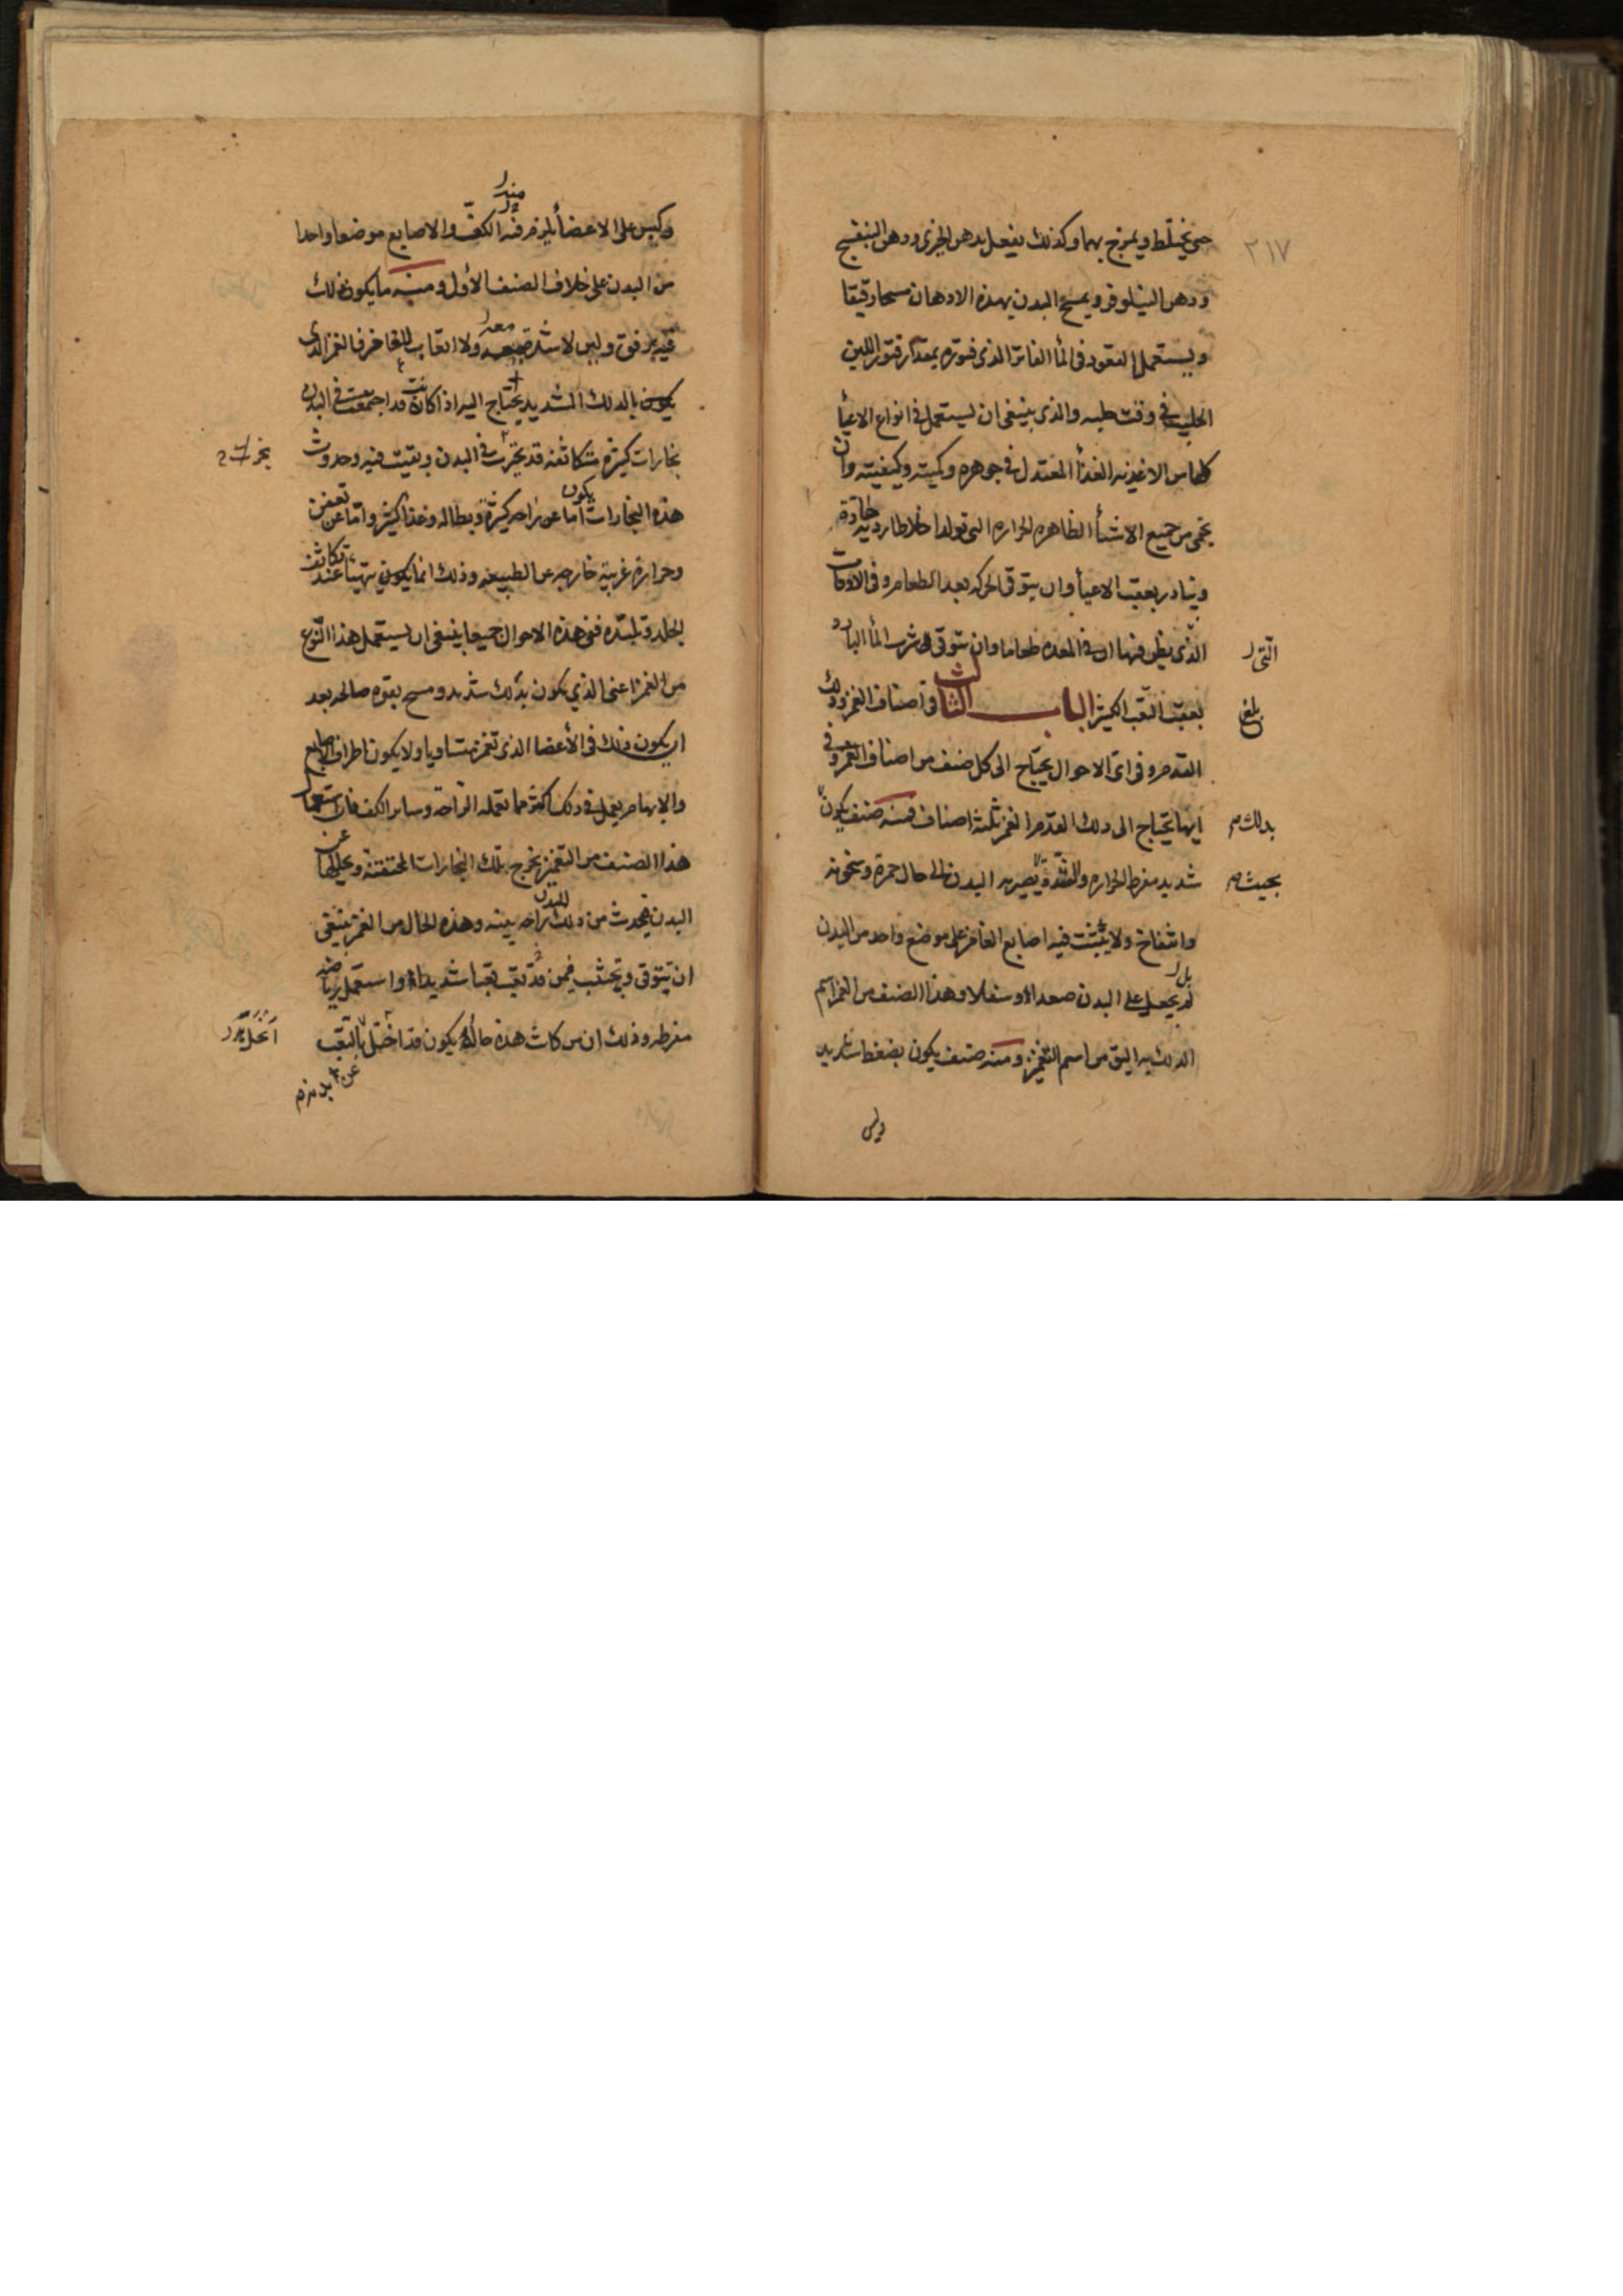 ٢١٧
حتى يختلط ويمزج بهما وكذلك يفعل بدهن الخيرى ودهن البنفسج
ودهن النيلوفر ويمسح البدن بهذه الادهان مسحا رقيقا
ويستعمل القعود فى الماء الفاتر الذى فتوره بمقدار فتور اللبن
الحليب فى وقت حلبه والذى ينبغى ان يستعمل فى انواع الاعيا
كلها من الاغذيه الغذا المعتدل فى جوهره وكميته وكيفيته وان
يحمى من جميع الاشيا الظاهره الحراره التى تولد اخلاطا رديه حادة
وتبادر بعقب الاعيا وان يتوقى الحركه بعد الطعام وفى الاوقات
الذى يظن فيها ان فى المعده طعاما وان يتوقى شرب الما البارد
التى
بعقب التعب الكثير الباب الثالث فى اصناف الغمز ودلك
بلغ
القدم وفى اى الاحوال يحتاج الى كل صنف من اصناف الغمز وفى
ايها يحتاج الى دلك القدم الغمز ثلثة اصناف فمنه صنف يكون
بدلك
شديد مفرط الحراره والشدة يصير به البدن الى حال حمرة وسخونه
بحيث
وانتفاخ ولا يثبت فيه اصابع الغامز على موضع واحد من البدن
لم يجعل على البدن صعدا وسفلا وهذا الصنف من الغمز اسم
بل
الدلك به اليق من اسم التغميز ومنه صنف يكون بضغط شديد
وليس
وكبس على الاعضا يلزم فيه الكف والاصابع موضعا واحدا
من البدن على خلاف الصنف الاول ومنه ما يكون ذلك
فيه برفق ولين لا شدة معه ولا اتعاب للغامز فالغمز الذى
يكون بالدلك الشديد يحتاج اليه اذا كانت قد اجتمعت فى البدن
بخارات كثيره متكاثفه قد تحيرت فى البدن وبقيت فيه وحدوث
هذه البخارات اما يكون عن راحه كثيرة وبطاله وغذا كثير واما عن تعفن
وحرارة غريبة خارجه عن الطبيعه وذلك انما يكون يتهيا عند تكاثف
الجلد وتلبده ففى هذه الاحوال جميعا ينبغى ان يستعمل هذا النوع
من الغمز اعنى الذي يكون بدلك شديد ومسح بقوه صالحه بعد
ان يكون ذلك فى الأعضا الذى تغمز متساويا ولا يكون اطراف الاصابع
والابهام يعمل فى ذلك اكثر مما تعمله الراحة وسائر الكف فان استعمال
هذا الصنف من التغميز يخرج تلك البخارات المحتقنة ويحللها عن
البدن فيحدث من ذلك للبدن راحه بينه وهذه الحال من الغمز ينبغى
ان تتوقى وتجتنب فيمن قد تعب تعبا شديدا واستعمل رياضه
مفرطه وذلك ان من كانت هذه حاله يكون قد اختل بالتعب
بدنه